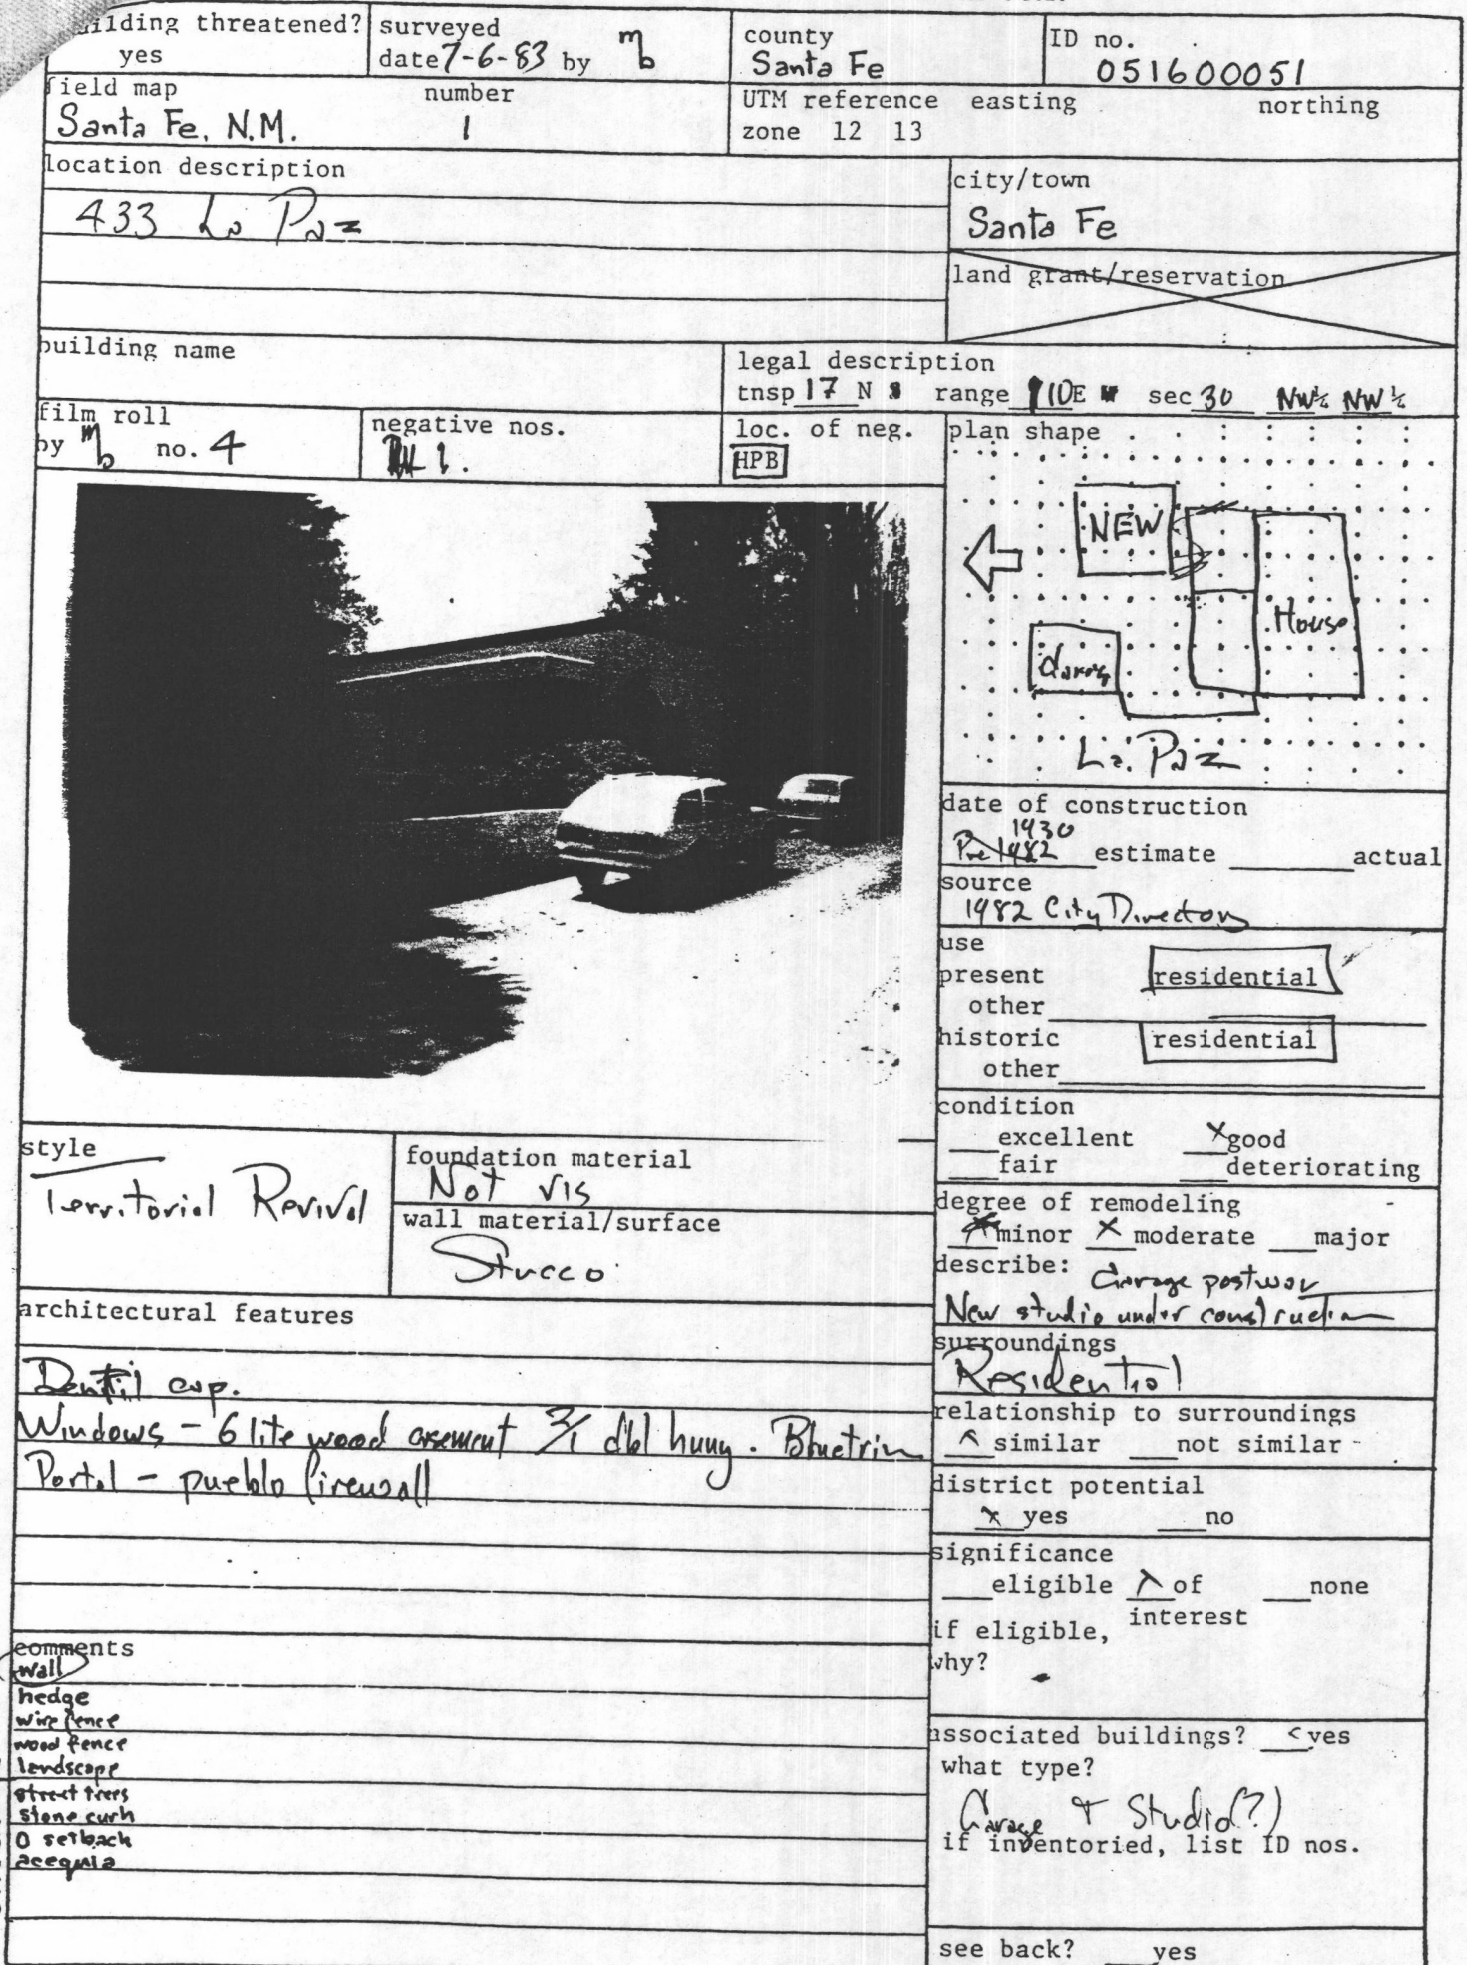 building threatened? yes
surveyed date 7-6-83 by mb
county Santa Fe
ID no. 051600051
field map Santa Fe, N.M.
number 1
UTM reference easting northing
zone 12 13
location description
433 La Paz
city/town
Santa Fe
land grant/reservation
building name
legal description
tnsp 17 N range 10E sec 30 NW¼ NW¼
film roll
by mb no. 4
negative nos.
1.
loc. of neg.
HPB
plan shape
NEW
House
Garage
La Paz
date of construction
1930
Pre 1982 estimate actual
source
1982 City Directory
use
present residential
other
historic residential
other
condition
excellent x good
fair deteriorating
degree of remodeling
x minor x moderate major
describe: Garage postwar
New studio under construction
surroundings
Residential
relationship to surroundings
similar not similar
district potential
x yes no
significance
eligible of none
interest
if eligible,
why?
associated buildings? yes
what type?
Garage + Studio(?)
if inventoried, list ID nos.
see back? yes
style
Territorial Revival
foundation material
Not vis
wall material/surface
Stucco
architectural features
Dentil cop.
Windows - 6 lite wood casement 3/1 dbl hung. Bluetrim
Portal - pueblo firewall
comments
wall
hedge
wire fence
wood fence
landscape
street trees
stone curb
0 setback
acequia